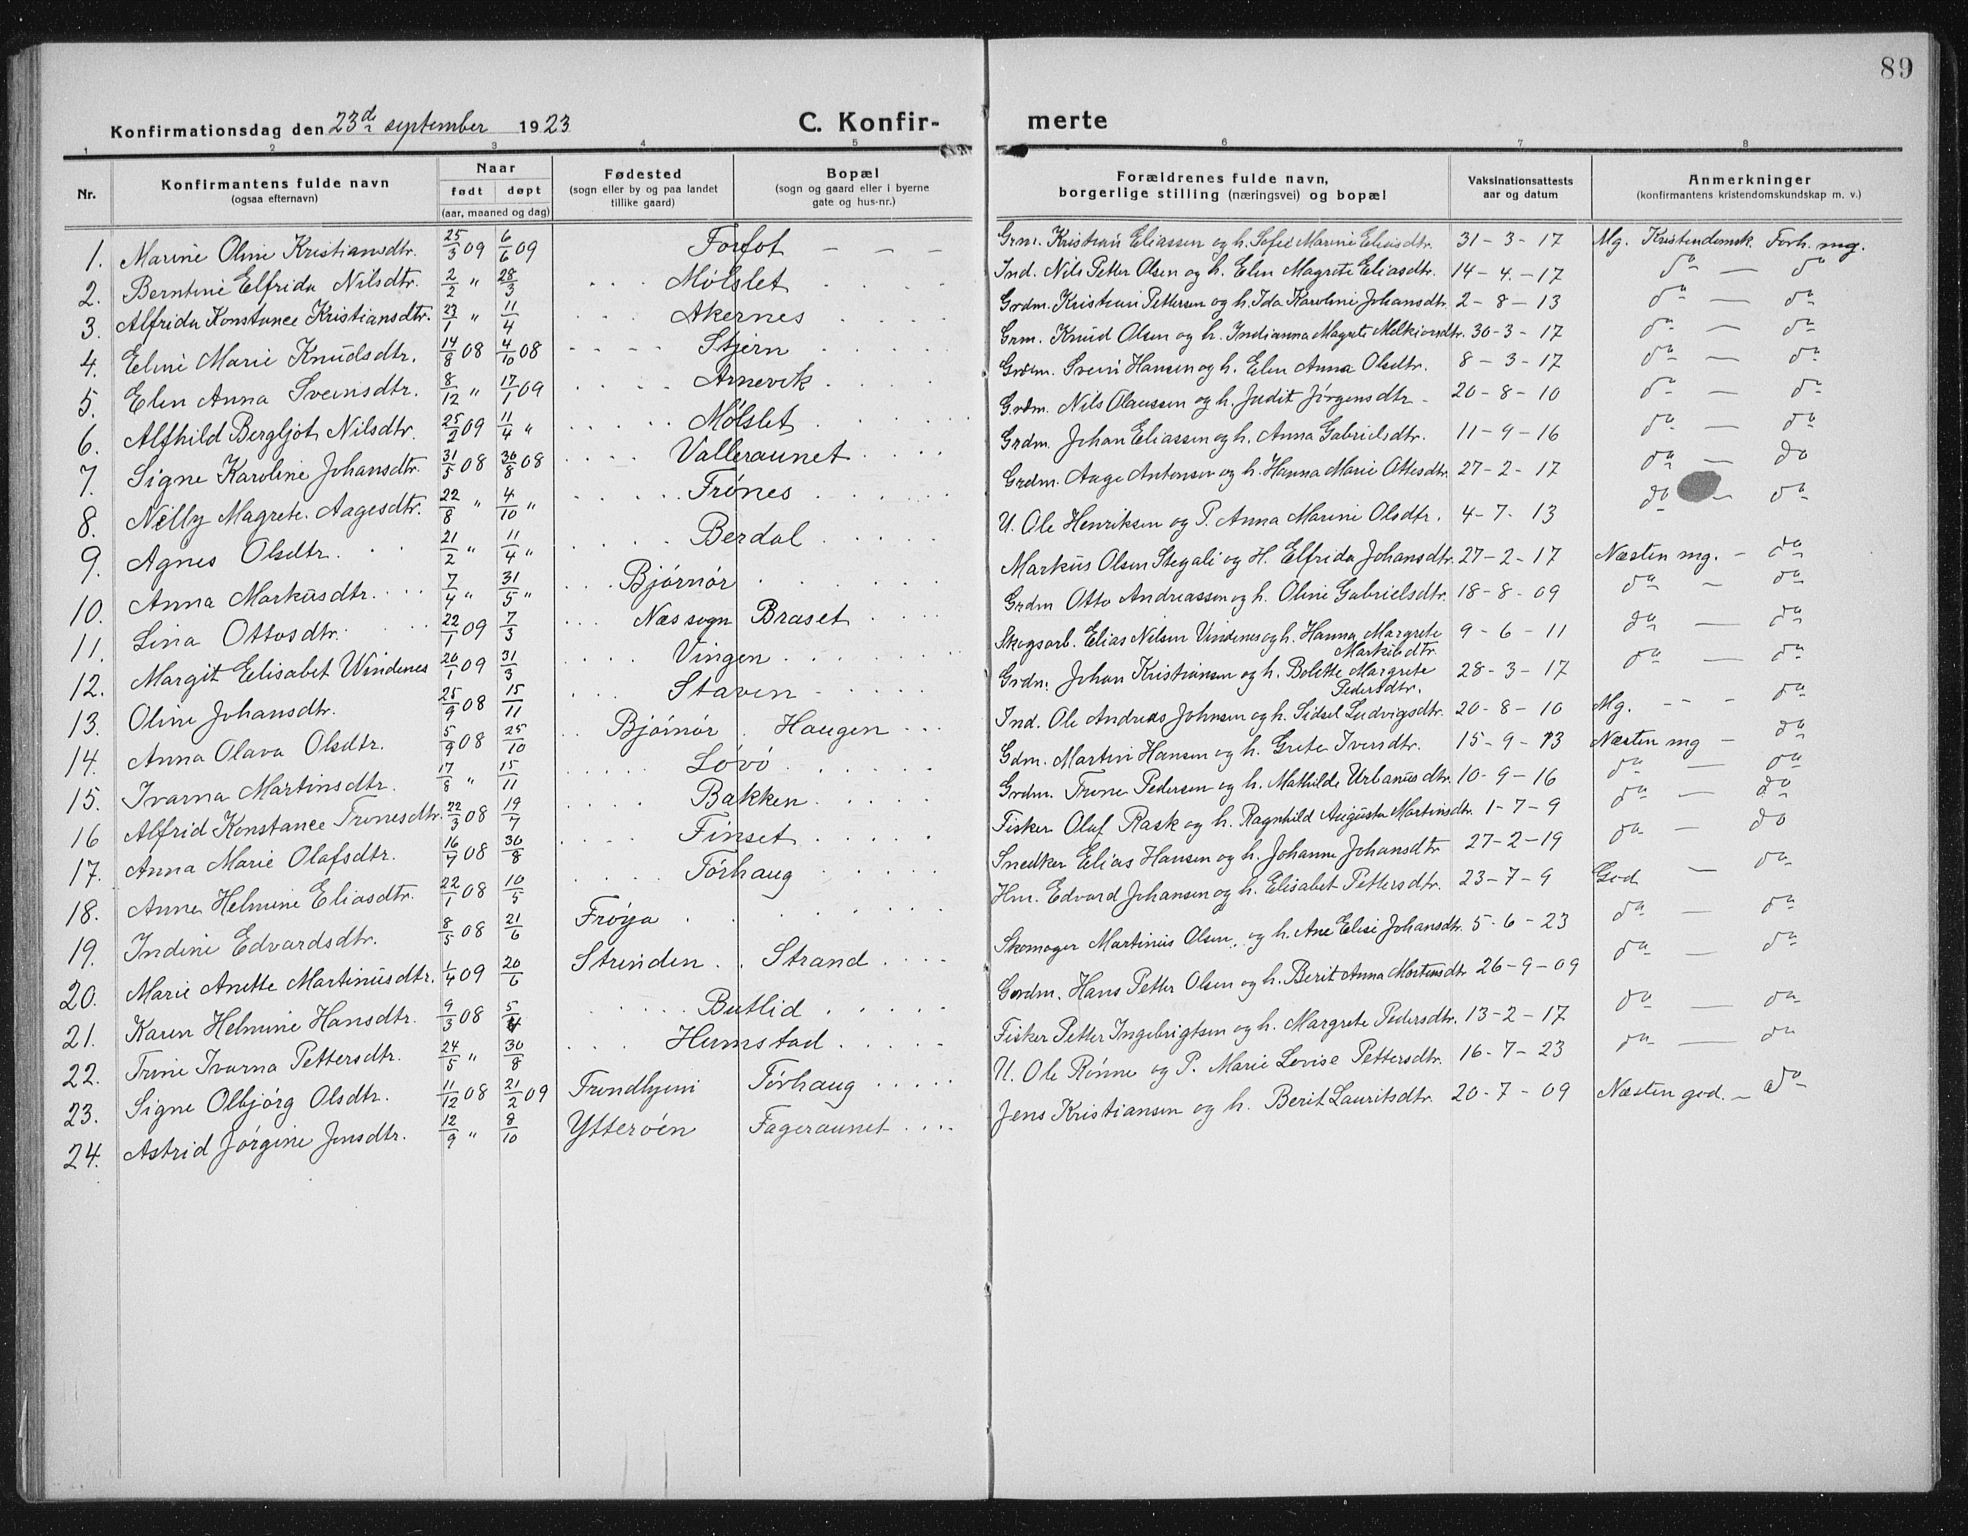 89
Konfirmationsdag den 23d september 1923 C. Konfir- merte
1 2 3 4 5 6 7 8
Nr. Konfirmantens fulde navn (ogsaa efternavn) Naar født døpt (aar, maaned og dag) Fødested (sogn eller by og paa landet tillike gaard) Bopæl (sogn og gaard eller i byerne gate og hus-nr.) Forældrenes fulde navn, borgerlige stilling (næringsvei) og bopæl Vaksinationsattests aar og datum Anmerkninger (konfirmantens kristendomskundskap m. v.)
1. Marine Oline Kristiansdtr. 25/3 09 6/6 09 Forfot - - - Grm. Kristian Eliassen og h. Sofie Marine Eliasdtr. 31-3-17 Mg. Kristendomsk. Forh. mg.
2. Berntine Elfrida Nilsdtr. 2/2 " 28/3 Mølslet Ind. Nils Petter Olsen og h. Elen Magrete Eliasdtr. 14-4-17 do — do
3. Alfrida Konstance Kristiansdtr. 23/1 " 11/4 Akernes Grdm. Kristian Pettersen og h. Ida Karoline Johansdtr. 2-8-13 do — do
4. Eline Marie Knudsdtr. 14/8 08 4/10 08 Stjern Grm. Knud Olsen og h. Indianna Magrete Melkiorsdtr. 30-3-17 do — do
5. Elen Anna Sveinsdtr. 8/12 " 17/1 09 Arnevik Grdm. Svein Hansen og h. Elen Anna Olsdtr. 8-3-17 do — do
6. Alfhild Bergljot Nilsdtr. 25/2 09 11/4 " Mølslet Grdm. Nils Olaussen og h. Judit Jørgensdtr - 20-8-10 do — do
7. Signe Karoline Johansdtr. 31/5 08 30/8 08 Valleraunet Grdm. Johan Eliassen og h. Anna Gabrielsdtr. 11-9-16 do — do
8. Nelly Magrete Aagesdtr. 22/8 " 4/10 " Frønes Grdm. Aage Antonsen og h. Hanna Marie Ottesdtr. 27-2-17 do — do
9. Agnes Olsdtr. 21/2 " 11/4 " Berdal U. Ole Henriksen og P. Anna Marine Olsdtr. 4-7-13 do — do
10. Anna Markusdtr. 7/4 " 31/5 " Bjørnør Markus Olsen Stegali og H. Elfrida Johansdtr. 27-2-17 Næsten mg. - do
11. Lina Ottosdtr. 22/1 09 7/3 Næs sogn Braset Grdm Otto Andreassen og h. Oline Gabrielsdtr. 18-8-09 do - do
12. Margit Elisabet Windenes 20/1 09 31/3 Vingen Skogsarb. Elias Nilsen Vindenes og h. Hanna Margrete Markusdtr. 9-6-11 do — do
13. Oline Johansdtr. 25/9 08 15/11 Staven Grdm. Johan Kristiansen og h. Bolette Margrete Pedersdtr. 28-3-17 do — do
14. Anna Olava Olsdtr. 5/9 08 25/10 Bjørnør Haugen Ind. Ole Andreas Johnsen og h. Sidsel Ludvigsdtr. 20-8-10 Mg. - - do
15. Ivarna Martinsdtr. 17/8 " 15/11 Løvø Gdm. Martin Hansen og h. Grete Iversdtr. 15-9-13 Næsten mg - do
16 Alfrid Konstance Tronesdtr. 22/3 08 19/7 Bakken Grdm. Trone Pedersen og h. Mathilde Urbanusdtr. 10-9-16 do — do
17. Anna Marie Olafsdtr. 16/7 08 30/8 Finset Fisker Olaf Rask og h. Ragnhild Augusta Martinsdtr. 1-7-9 do — do
18. Anne Helmine Eliasdtr. 22/1 08 10/5 Tørhaug Snedker Elias Hansen og h. Johanne Johansdtr 27-2-19 do — do
19. Indine Edvardsdtr. 8/5 08 21/6 Frøya Hm. Edvard Johansen og h. Elisabet Pettersdtr. 23-7-9 God - do
20. Marie Anette Martinusdtr. 1/4 09 20/6 Strinden Strand Skomager Martinus Olsen og h. Ane Elise Johansdtr. 5-6-23 do — do
21. Karen Helmine Hansdtr. 9/3 08 5/4 Butlid Gardm. Hans Petter Olsen og h. Berit Anna Mortensdtr 26-9-09 do — do
22. Trine Ivarna Pettersdtr. 24/5 " 30/8 Humstad Fisker Petter Ingebrigtsen og h. Margrete Pedersdtr. 13-2-17 do — do
23. Signe Olbjørg Olsdtr. 11/12 08 21/2 09 Trondhjem Tørhaug U. Ole Rønne og P. Marie Lovise Pettersdtr. 16-7-23 do — do
24. Astrid Jørgine Jensdtr. 12/9 " 8/10 Ytterøen Fageraunet Jens Kristiansen og h. Berit Lauritsdtr. 20-7-09 Næsten god. - do